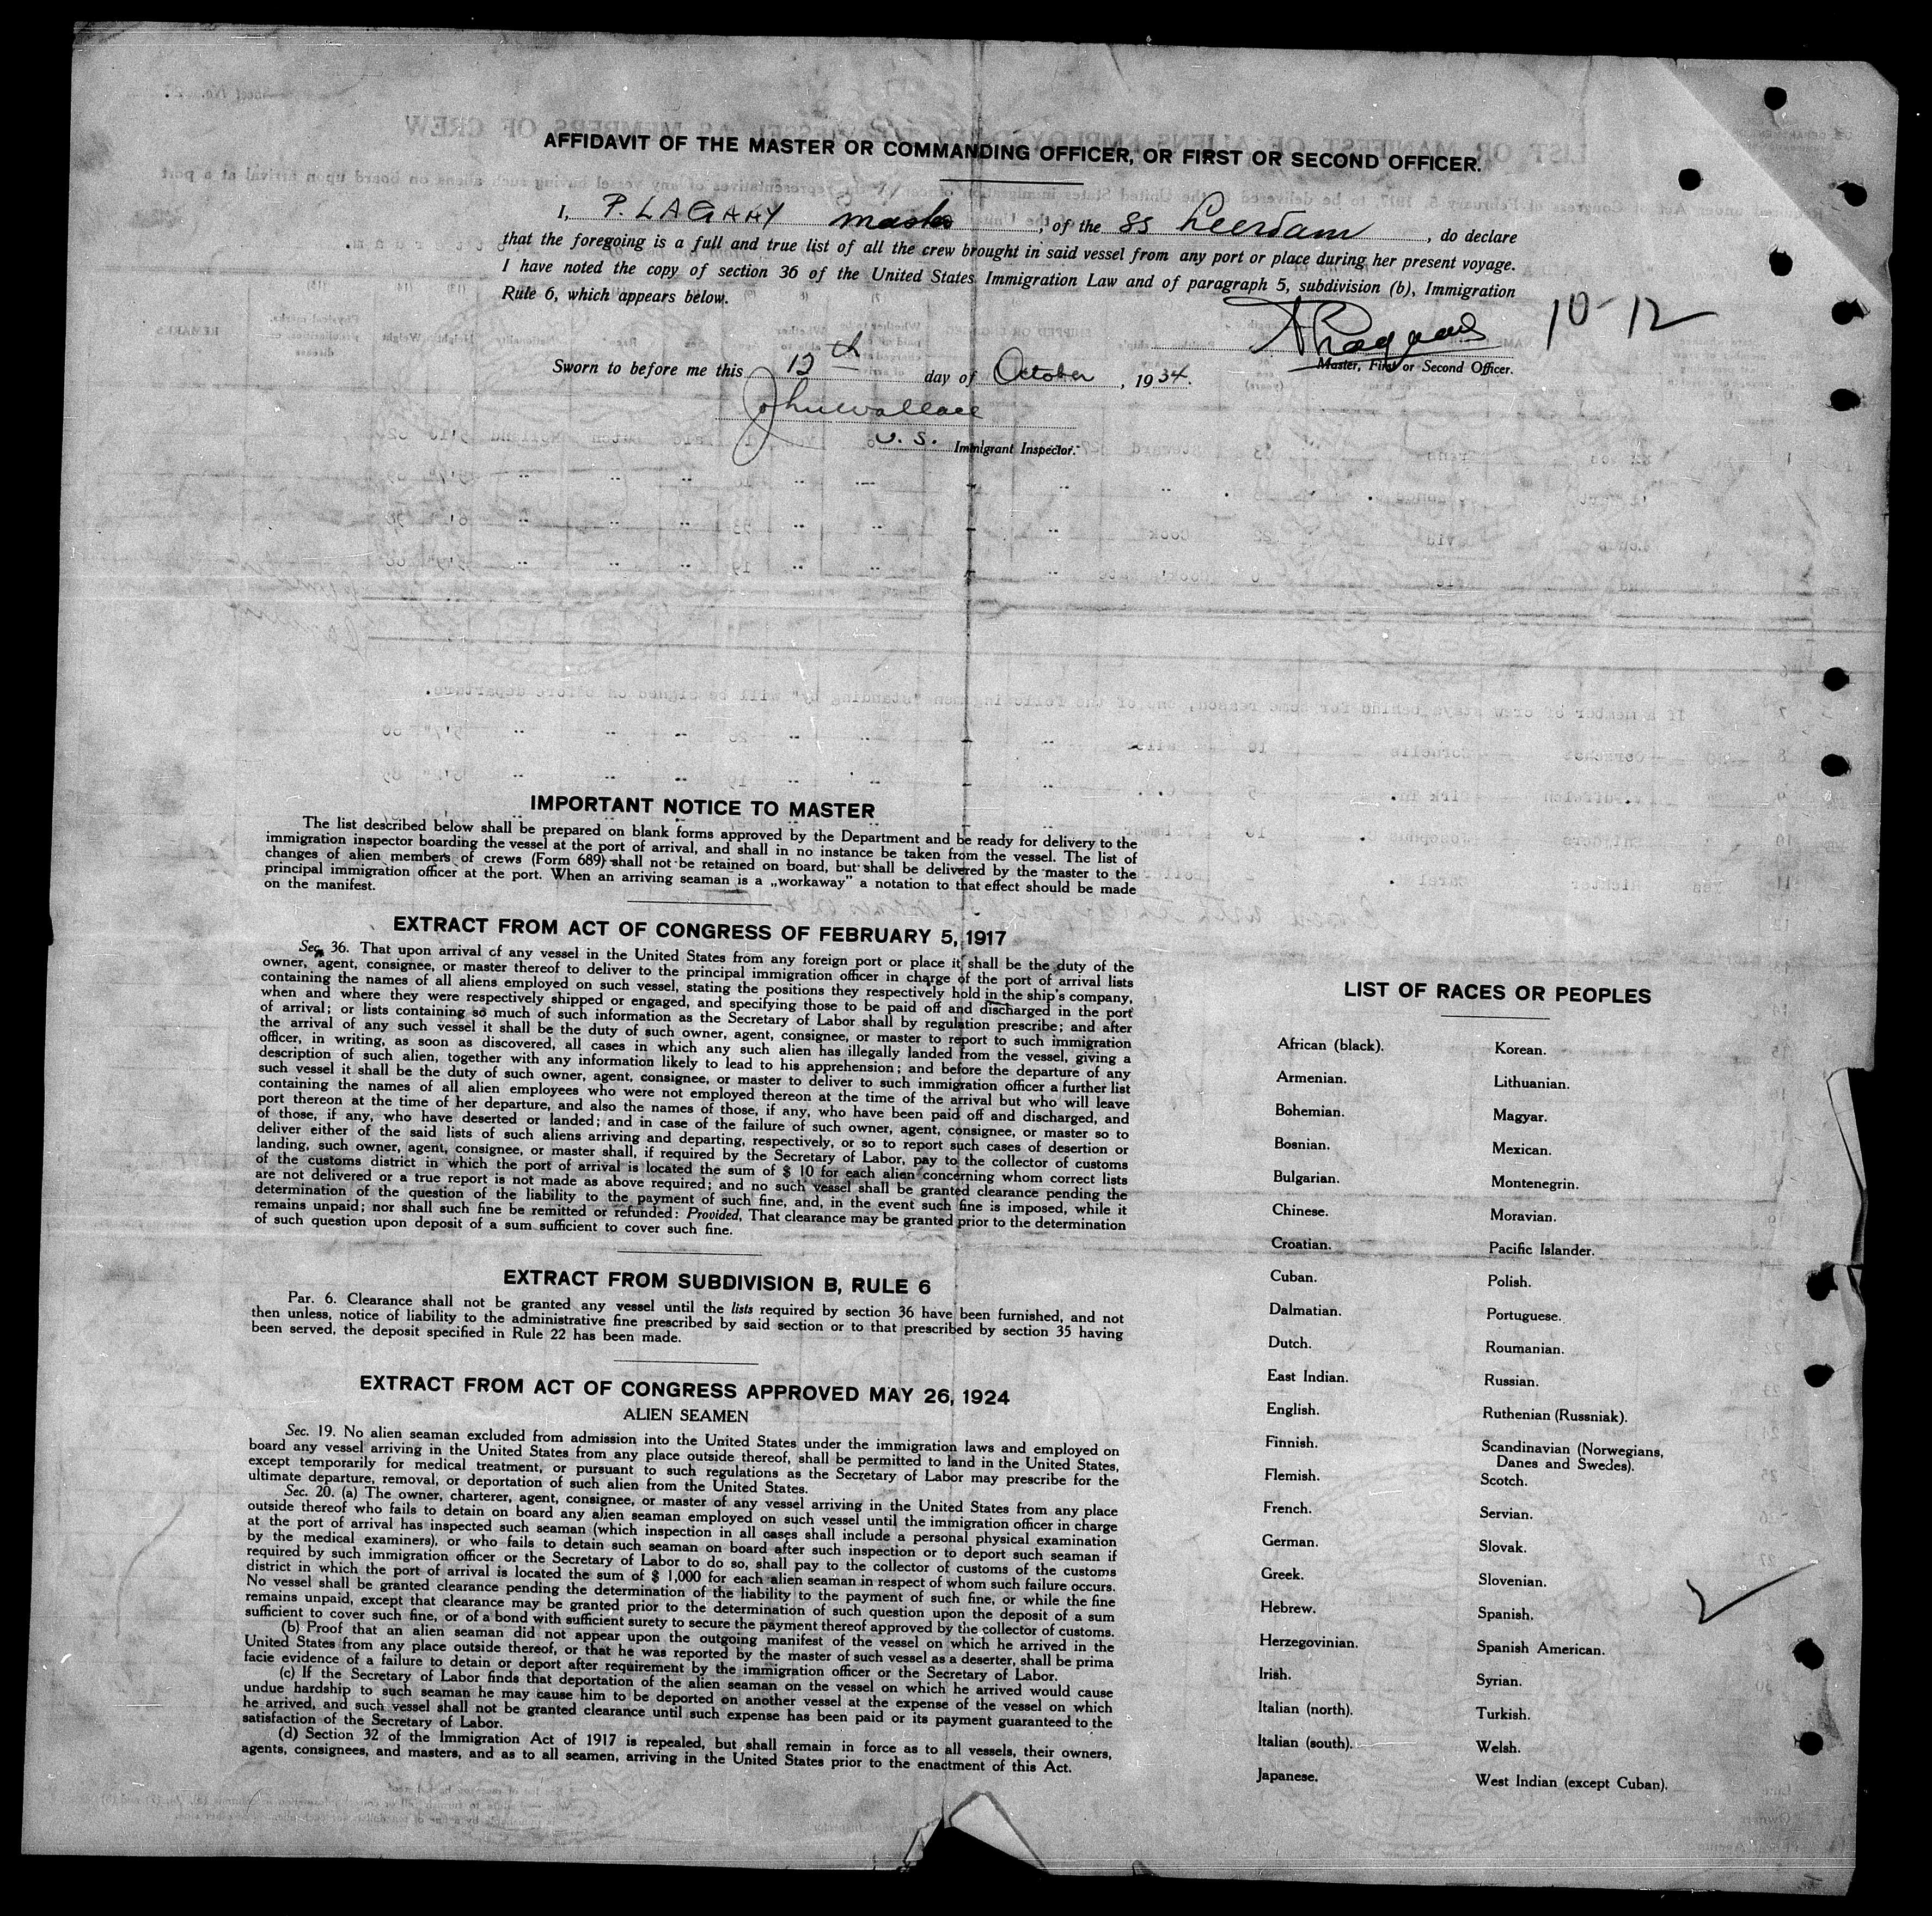 AFFIDAVIT OF THE MASTER OR COMMANDING OFFICER, OR FIRST OR SECOND OFFICER.
I, P. LAGAAY master, of the SS Leerdam, do declare
that the foregoing is a full and true list of all the crew brought in said vessel from any port or place during her present voyage.
I have noted the copy of section 36 of the United States Immigration Law and of paragraph 5, subdivision (b), Immigration
Rule 6, which appears below.
10-12
Master, First or Second Officer.
Sworn to before me this 12th day of October, 1934.
John Wallace
U. S. Immigrant Inspector.
IMPORTANT NOTICE TO MASTER
The list described below shall be prepared on blank forms approved by the Department and be ready for delivery to the
immigration inspector boarding the vessel at the port of arrival, and shall in no instance be taken from the vessel. The list of
changes of alien members of crews (Form 689) shall not be retained on board, but shall be delivered by the master to the
principal immigration officer at the port. When an arriving seaman is a „workaway” a notation to that effect should be made
on the manifest.
EXTRACT FROM ACT OF CONGRESS OF FEBRUARY 5, 1917
Sec. 36. That upon arrival of any vessel in the United States from any foreign port or place it shall be the duty of the
owner, agent, consignee, or master thereof to deliver to the principal immigration officer in charge of the port of arrival lists
containing the names of all aliens employed on such vessel, stating the positions they respectively hold in the ship's company,
when and where they were respectively shipped or engaged, and specifying those to be paid off and discharged in the port
of arrival; or lists containing so much of such information as the Secretary of Labor shall by regulation prescribe; and after
the arrival of any such vessel it shall be the duty of such owner, agent, consignee, or master to report to such immigration
officer, in writing, as soon as discovered, all cases in which any such alien has illegally landed from the vessel, giving a
description of such alien, together with any information likely to lead to his apprehension; and before the departure of any
such vessel it shall be the duty of such owner, agent, consignee, or master to deliver to such immigration officer a further list
containing the names of all alien employees who were not employed thereon at the time of the arrival but who will leave
port thereon at the time of her departure, and also the names of those, if any, who have been paid off and discharged, and
of those, if any, who have deserted or landed; and in case of the failure of such owner, agent, consignee, or master so to
deliver either of the said lists of such aliens arriving and departing, respectively, or so to report such cases of desertion or
landing, such owner, agent, consignee, or master shall, if required by the Secretary of Labor, pay to the collector of customs
of the customs district in which the port of arrival is located the sum of $ 10 for each alien concerning whom correct lists
are not delivered or a true report is not made as above required; and no such vessel shall be granted clearance pending the
determination of the question of the liability to the payment of such fine, and, in the event such fine is imposed, while it
remains unpaid; nor shall such fine be remitted or refunded: Provided, That clearance may be granted prior to the determination
of such question upon deposit of a sum sufficient to cover such fine.
EXTRACT FROM SUBDIVISION B, RULE 6
Par. 6. Clearance shall not be granted any vessel until the lists required by section 36 have been furnished, and not
then unless, notice of liability to the administrative fine prescribed by said section or to that prescribed by section 35 having
been served, the deposit specified in Rule 22 has been made.
EXTRACT FROM ACT OF CONGRESS APPROVED MAY 26, 1924
ALIEN SEAMEN
Sec. 19. No alien seaman excluded from admission into the United States under the immigration laws and employed on
board any vessel arriving in the United States from any place outside thereof, shall be permitted to land in the United States,
except temporarily for medical treatment, or pursuant to such regulations as the Secretary of Labor may prescribe for the
ultimate departure, removal, or deportation of such alien from the United States.
Sec. 20. (a) The owner, charterer, agent, consignee, or master of any vessel arriving in the United States from any place
outside thereof who fails to detain on board any alien seaman employed on such vessel until the immigration officer in charge
at the port of arrival has inspected such seaman (which inspection in all cases shall include a personal physical examination
by the medical examiners), or who fails to detain such seaman on board after such inspection or to deport such seaman if
required by such immigration officer or the Secretary of Labor to do so, shall pay to the collector of customs of the customs
district in which the port of arrival is located the sum of $ 1,000 for each alien seaman in respect of whom such failure occurs.
No vessel shall be granted clearance pending the determination of the liability to the payment of such fine, or while the fine
remains unpaid, except that clearance may be granted prior to the determination of such question upon the deposit of a sum
sufficient to cover such fine, or of a bond with sufficient surety to secure the payment thereof approved by the collector of customs.
(b) Proof that an alien seaman did not appear upon the outgoing manifest of the vessel on which he arrived in the
United States from any place outside thereof, or that he was reported by the master of such vessel as a deserter, shall be prima
facie evidence of a failure to detain or deport after requirement by the immigration officer or the Secretary of Labor.
(c) If the Secretary of Labor finds that deportation of the alien seaman on the vessel on which he arrived would cause
undue hardship to such seaman he may cause him to be deported on another vessel at the expense of the vessel on which
he arrived, and such vessel shall not be granted clearance until such expense has been paid or its payment guaranteed to the
satisfaction of the Secretary of Labor.
(d) Section 32 of the Immigration Act of 1917 is repealed, but shall remain in force as to all vessels, their owners,
agents, consignees, and masters, and as to all seamen, arriving in the United States prior to the enactment of this Act.
LIST OF RACES OR PEOPLES
African (black).
Armenian.
Bohemian.
Bosnian.
Bulgarian.
Chinese.
Croatian.
Cuban.
Dalmatian.
Dutch.
East Indian.
English.
Finnish.
Flemish.
French.
German.
Greek.
Hebrew.
Herzegovinian.
Irish.
Italian (north).
Italian (south).
Japanese.
Korean.
Lithuanian.
Magyar.
Mexican.
Montenegrin.
Moravian.
Pacific Islander.
Polish.
Portuguese.
Roumanian.
Russian.
Ruthenian (Russniak).
Scandinavian (Norwegians,
Danes and Swedes).
Scotch.
Servian.
Slovak.
Slovenian.
Spanish.
Spanish American.
Syrian.
Turkish.
Welsh.
West Indian (except Cuban).